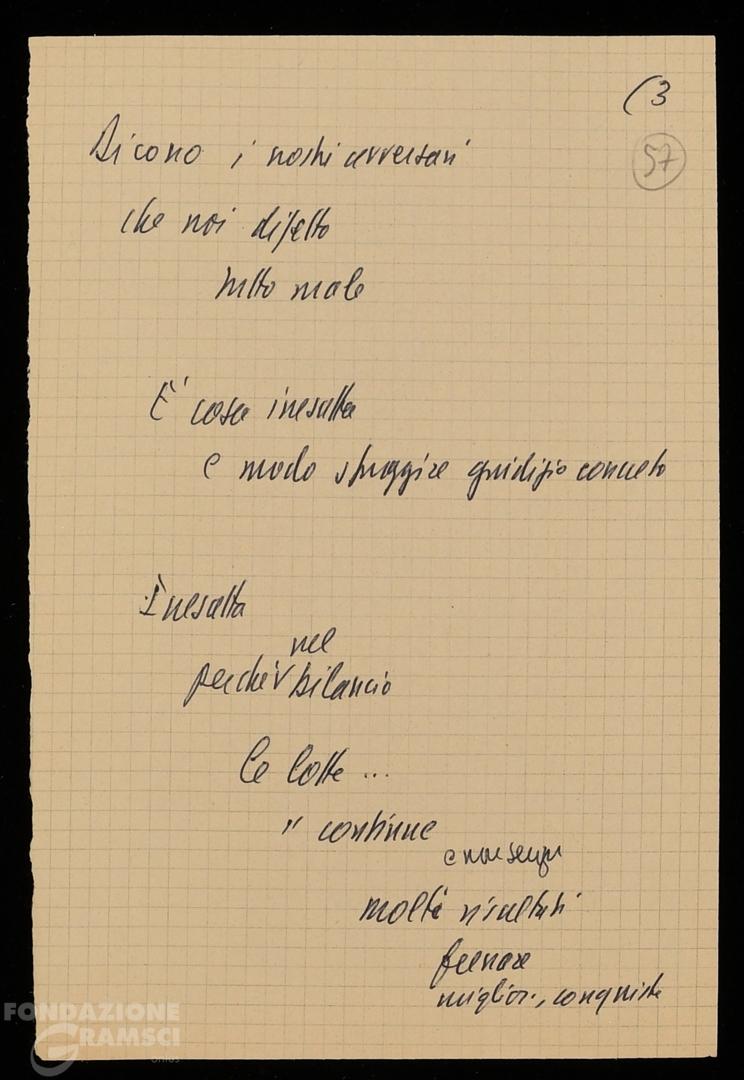 (3
57
Dicono i nostri avversari
che noi difetto
tutto male
È cosa inesatta
e modo sfuggire giudizio concreto
Inesatta
nel
perché bilancio
Le lotte ...
" continue
e non
molti risultati
frenare
miglior., conquiste
FONDAZIONE
GRAMSCI
onlus